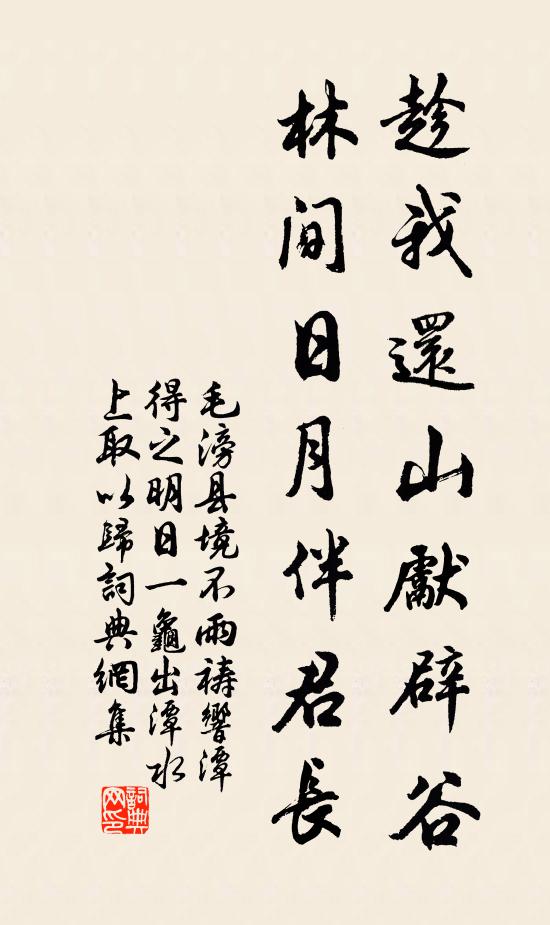 趁我還山獻辟谷
林間日月伴君長
毛滂县境不雨祷響潭
得之明日一龜出潭水
上取以歸詞典網集
詞典网印